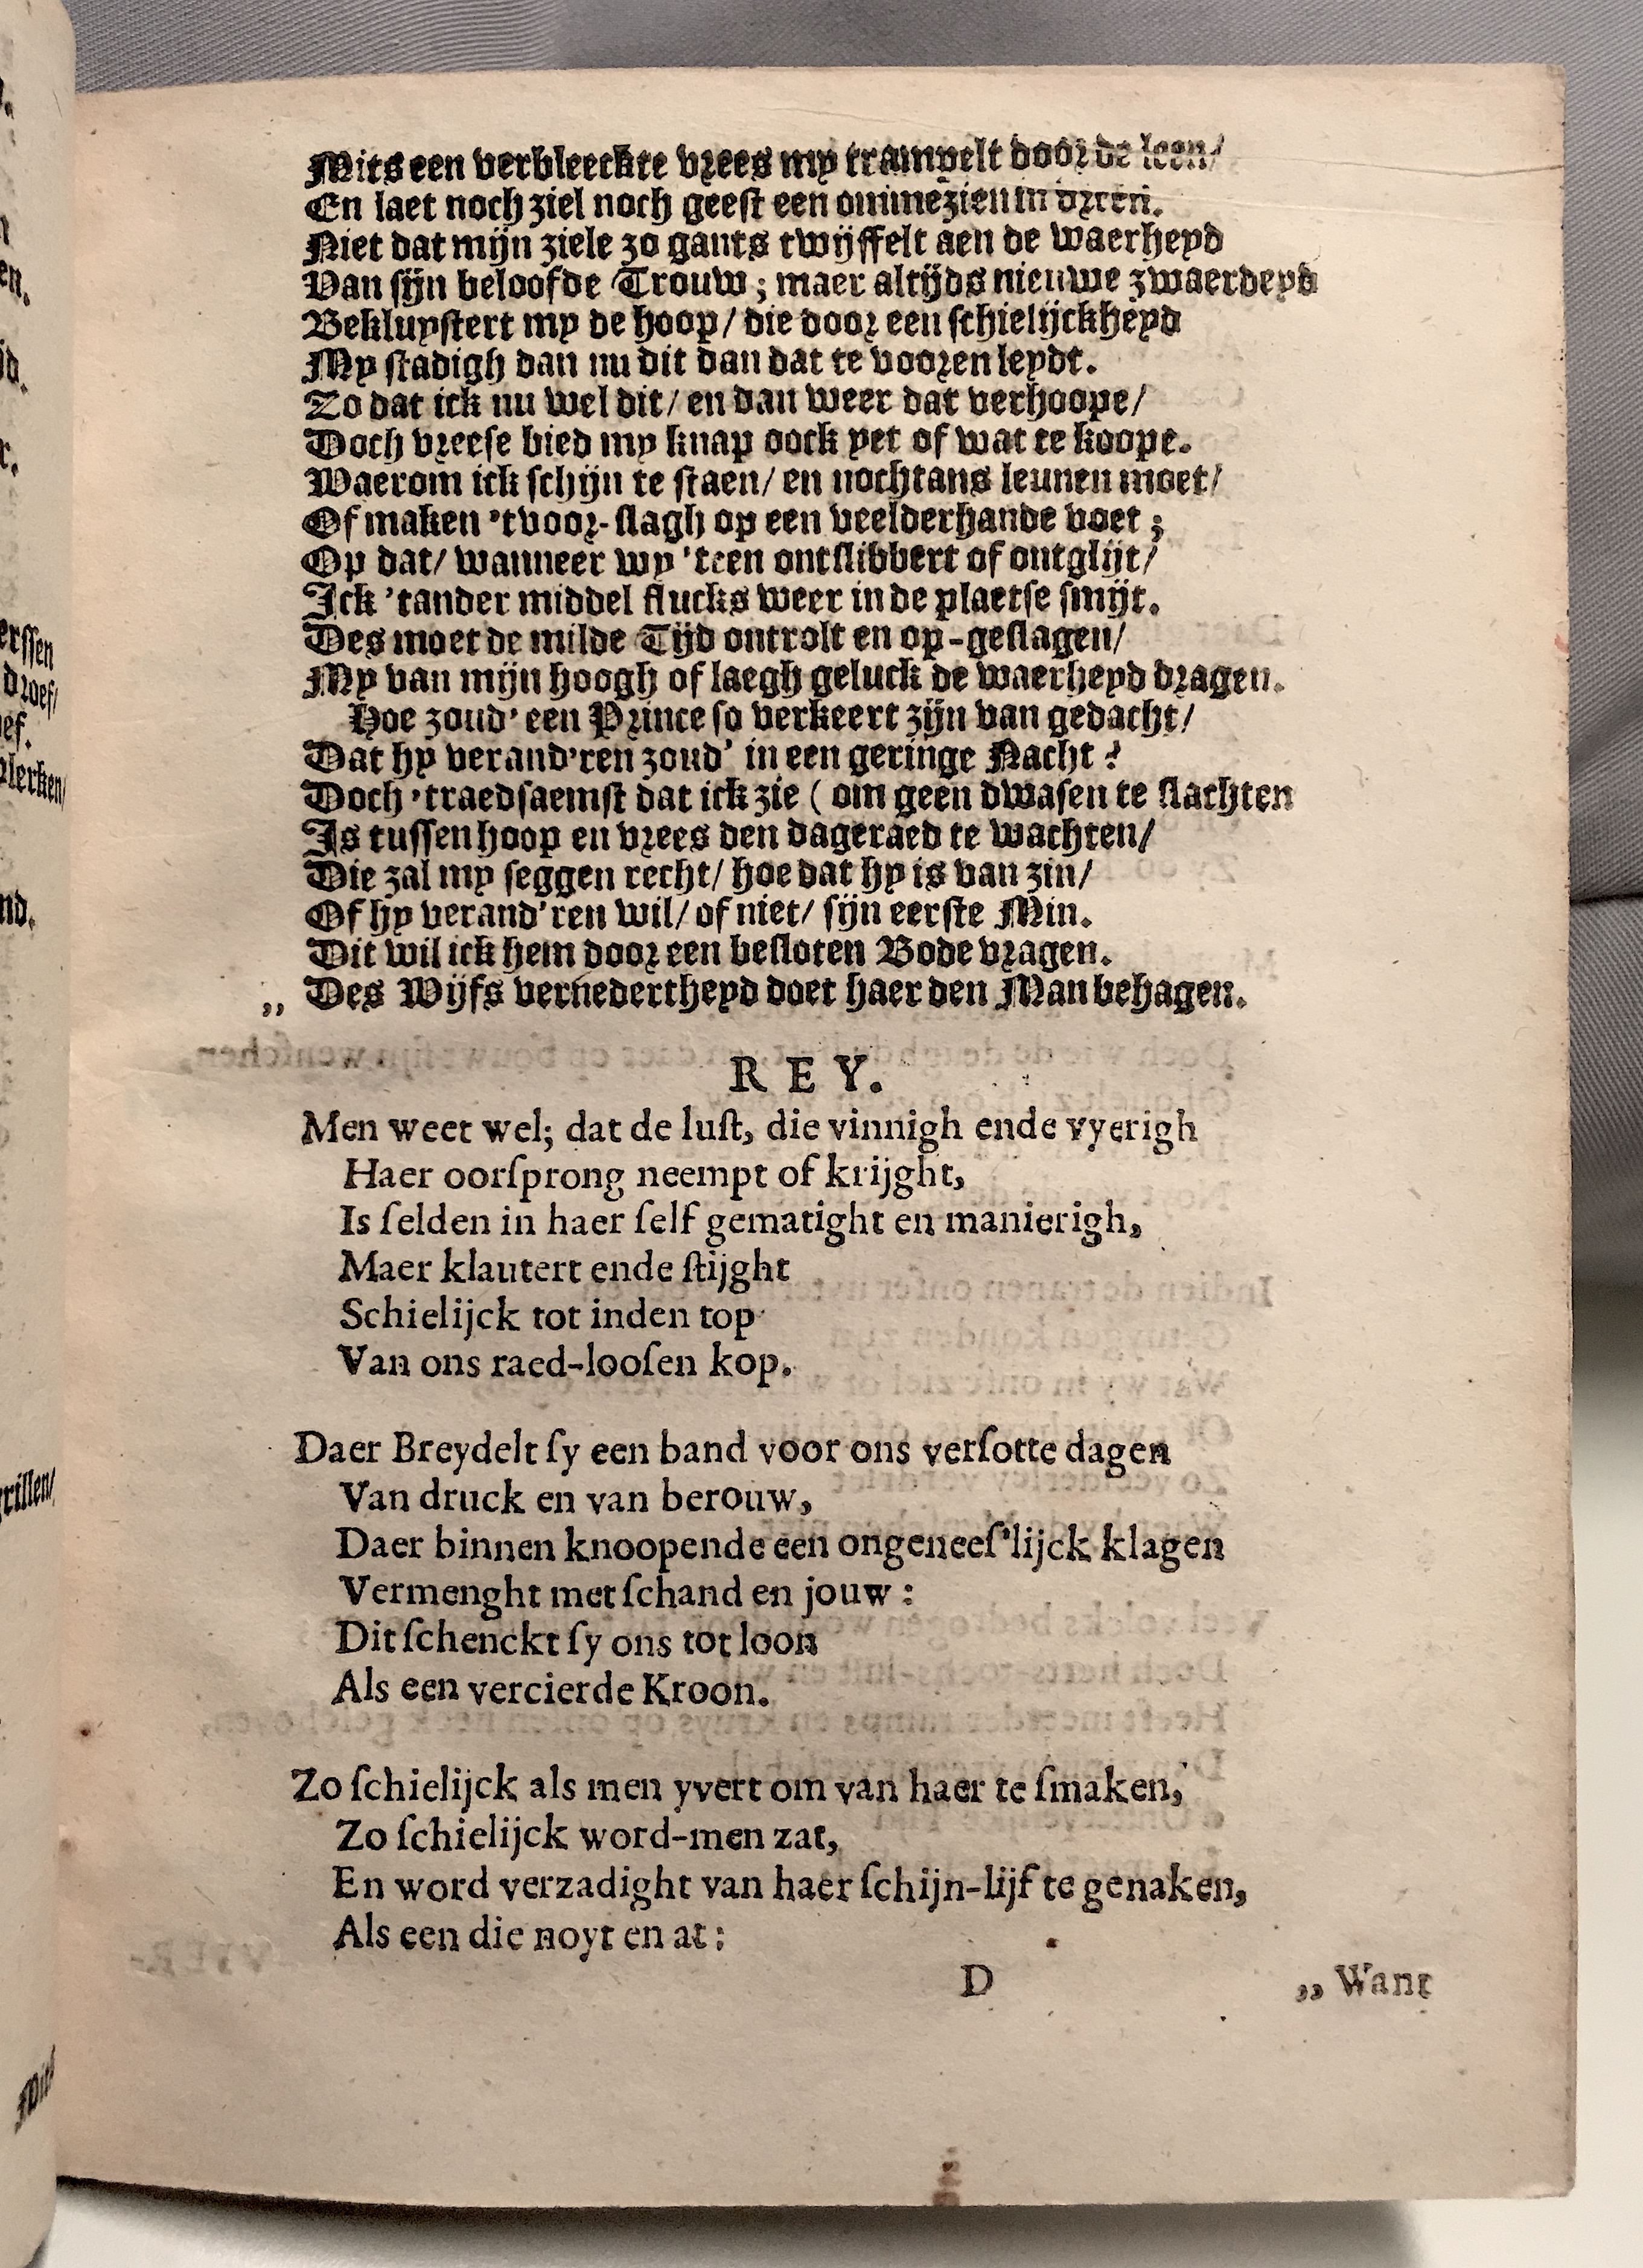 Mits een verbleeckte vrees my trampelt door de leen/
En laet noch ziel noch geest een ommezien in vreen.
Niet dat mijn ziele zo gants twijffelt aen de waerheyd
Van sijn beloofde Trouw; maer altijds nieuwe zwaerdeyd
Bekluystert my de hoop/ die door een schielijckheyd
My stadigh dan nu dit dan dat te vooren leydt.
Zo dat ick nu wel dit/ en dan weer dat verhoope/
Doch vreese bied my knap oock yet of wat te koope.
Waerom ick schijn te staen/ en nochtans leunen moet/
Of maken 'tvoor-slagh op een veelderhande voet;
Op dat/ wanneer my 'teen ontslibbert of ontglijt/
Ick 'tander middel flucks weer in de plaetse smijt.
Des moet de milde Tijd ontrolt en op-geslagen/
My van mijn hoogh of laegh geluck de waerheyd dragen.
Hoe zoud' een Prince so verkeert zijn van gedacht/
Dat hy verand'ren zoud' in een geringe Nacht?
Doch 'traedsaemst dat ick zie ( om geen dwasen te slachten
Is tussen hoop en vrees den dageraed te wachten/
Die zal my seggen recht/ hoe dat hy is van zin/
Of hy verand'ren wil/ of niet/ sijn eerste Min.
Dit wil ick hem door een besloten Bode vragen.
„ Des Wijfs vernedertheyd doet haer den Man behagen.
REY.
Men weet wel; dat de luſt, die vinnigh ende vyerigh
Haer oorſprong neempt of krijght,
Is ſelden in haer ſelf gematight en manierigh,
Maer klautert ende ſtijght
Schielijck tot inden top
Van ons raed-looſen kop.
Daer Breydelt ſy een band voor ons verſotte dagen
Van druck en van berouw,
Daer binnen knoopende een ongeneeſ'lijck klagen
Vermenght met ſchand en jouw:
Dit ſchenckt ſy ons tot loon
Als een vercierde Kroon.
Zo ſchielijck als men yvert om van haer te ſmaken,
Zo ſchielijck word-men zat,
En word verzadight van haer ſchijn-lijf te genaken,
Als een die noyt en at:
D
„ Want